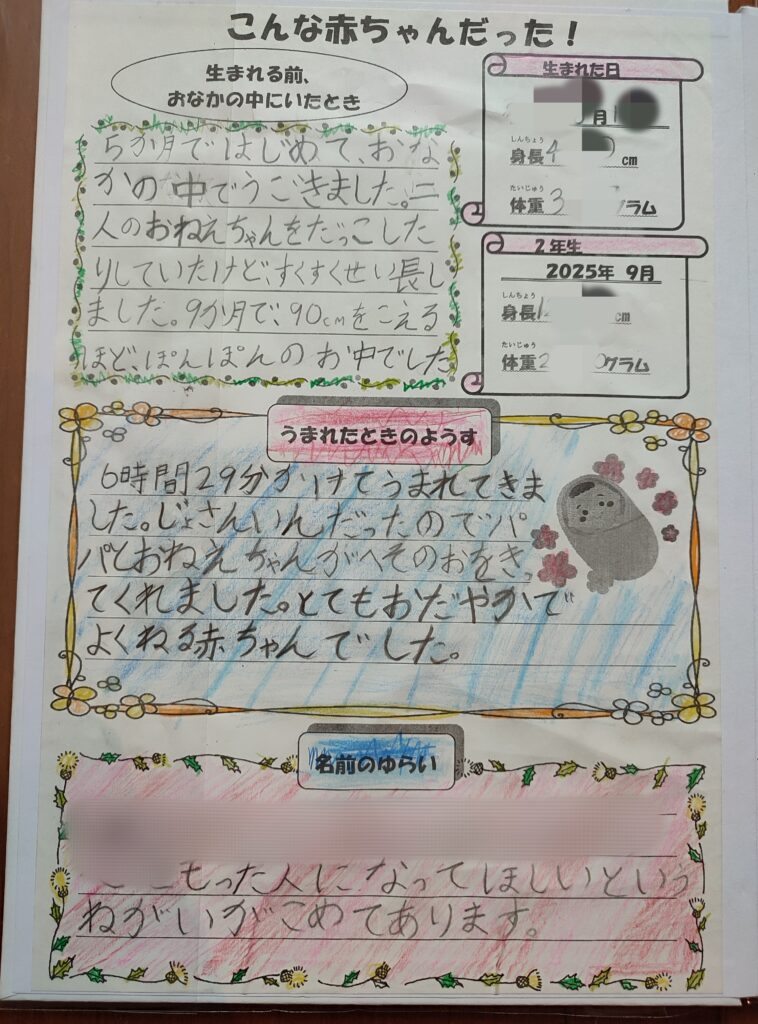 こんな赤ちゃんだった！
生まれる前、
おなかの中にいたとき
5か月ではじめて、おな
かの中でうごきました。二
人のおねえちゃんをだっこした
りしていたけど、すくすくせい長し
ました。9か月で、90cmをこえる
ほど、ぽんぽんのお中でした
生まれた日
月
しんちょう
身長4 cm
たいじゅう
体重3 グラム
2年生
2025年 9月
しんちょう
身長1 cm
たいじゅう
体重2 グラム
うまれたときのようす
6時間29分かけてうまれてきま
した。じょさんいんだったのでパ
パとおねえちゃんがへそのおをきっ
てくれました。とてもおだやかで
よくねる赤ちゃんでした。
名前のゆらい
もった人になってほしいという
ねがいがこめてあります。